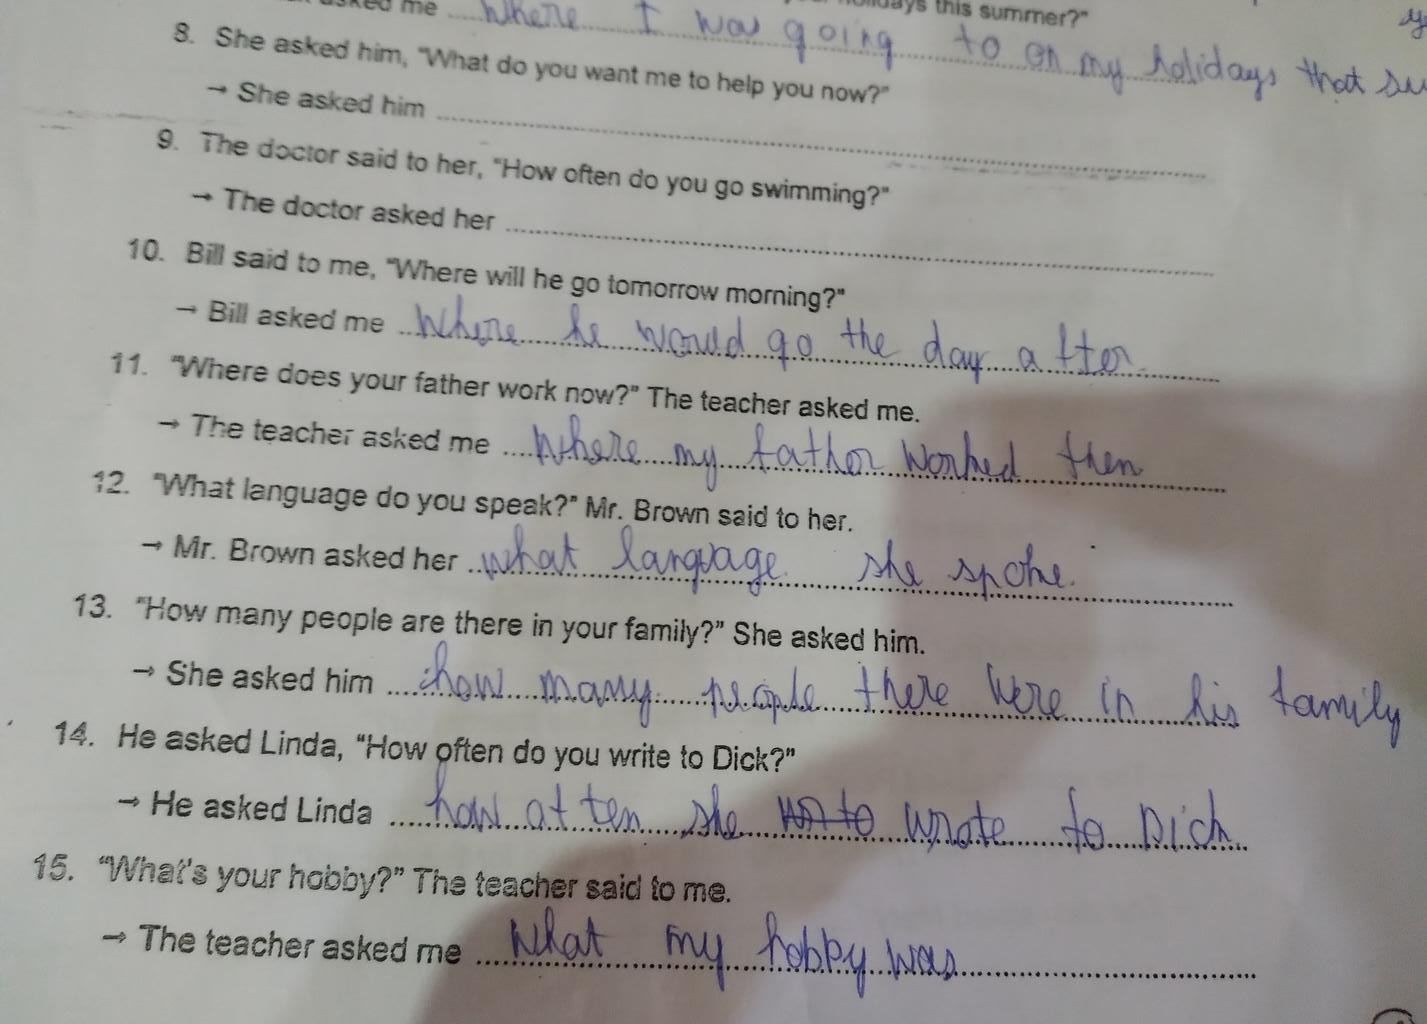 asked me where I was going to on my holidays that su
holidays this summer?"
8. She asked him, "What do you want me to help you now?"
→ She asked him
9. The doctor said to her, "How often do you go swimming?"
→ The doctor asked her
10. Bill said to me, "Where will he go tomorrow morning?"
→ Bill asked me where he would go the day after
11. "Where does your father work now?" The teacher asked me.
→ The teacher asked me where my father worked then
12. "What language do you speak?" Mr. Brown said to her.
→ Mr. Brown asked her what language she spoke.
13. "How many people are there in your family?" She asked him.
→ She asked him how many people there were in his family
14. He asked Linda, "How often do you write to Dick?"
→ He asked Linda how often she wrote to Dick.
15. "What's your hobby?" The teacher said to me.
→ The teacher asked me what my hobby was